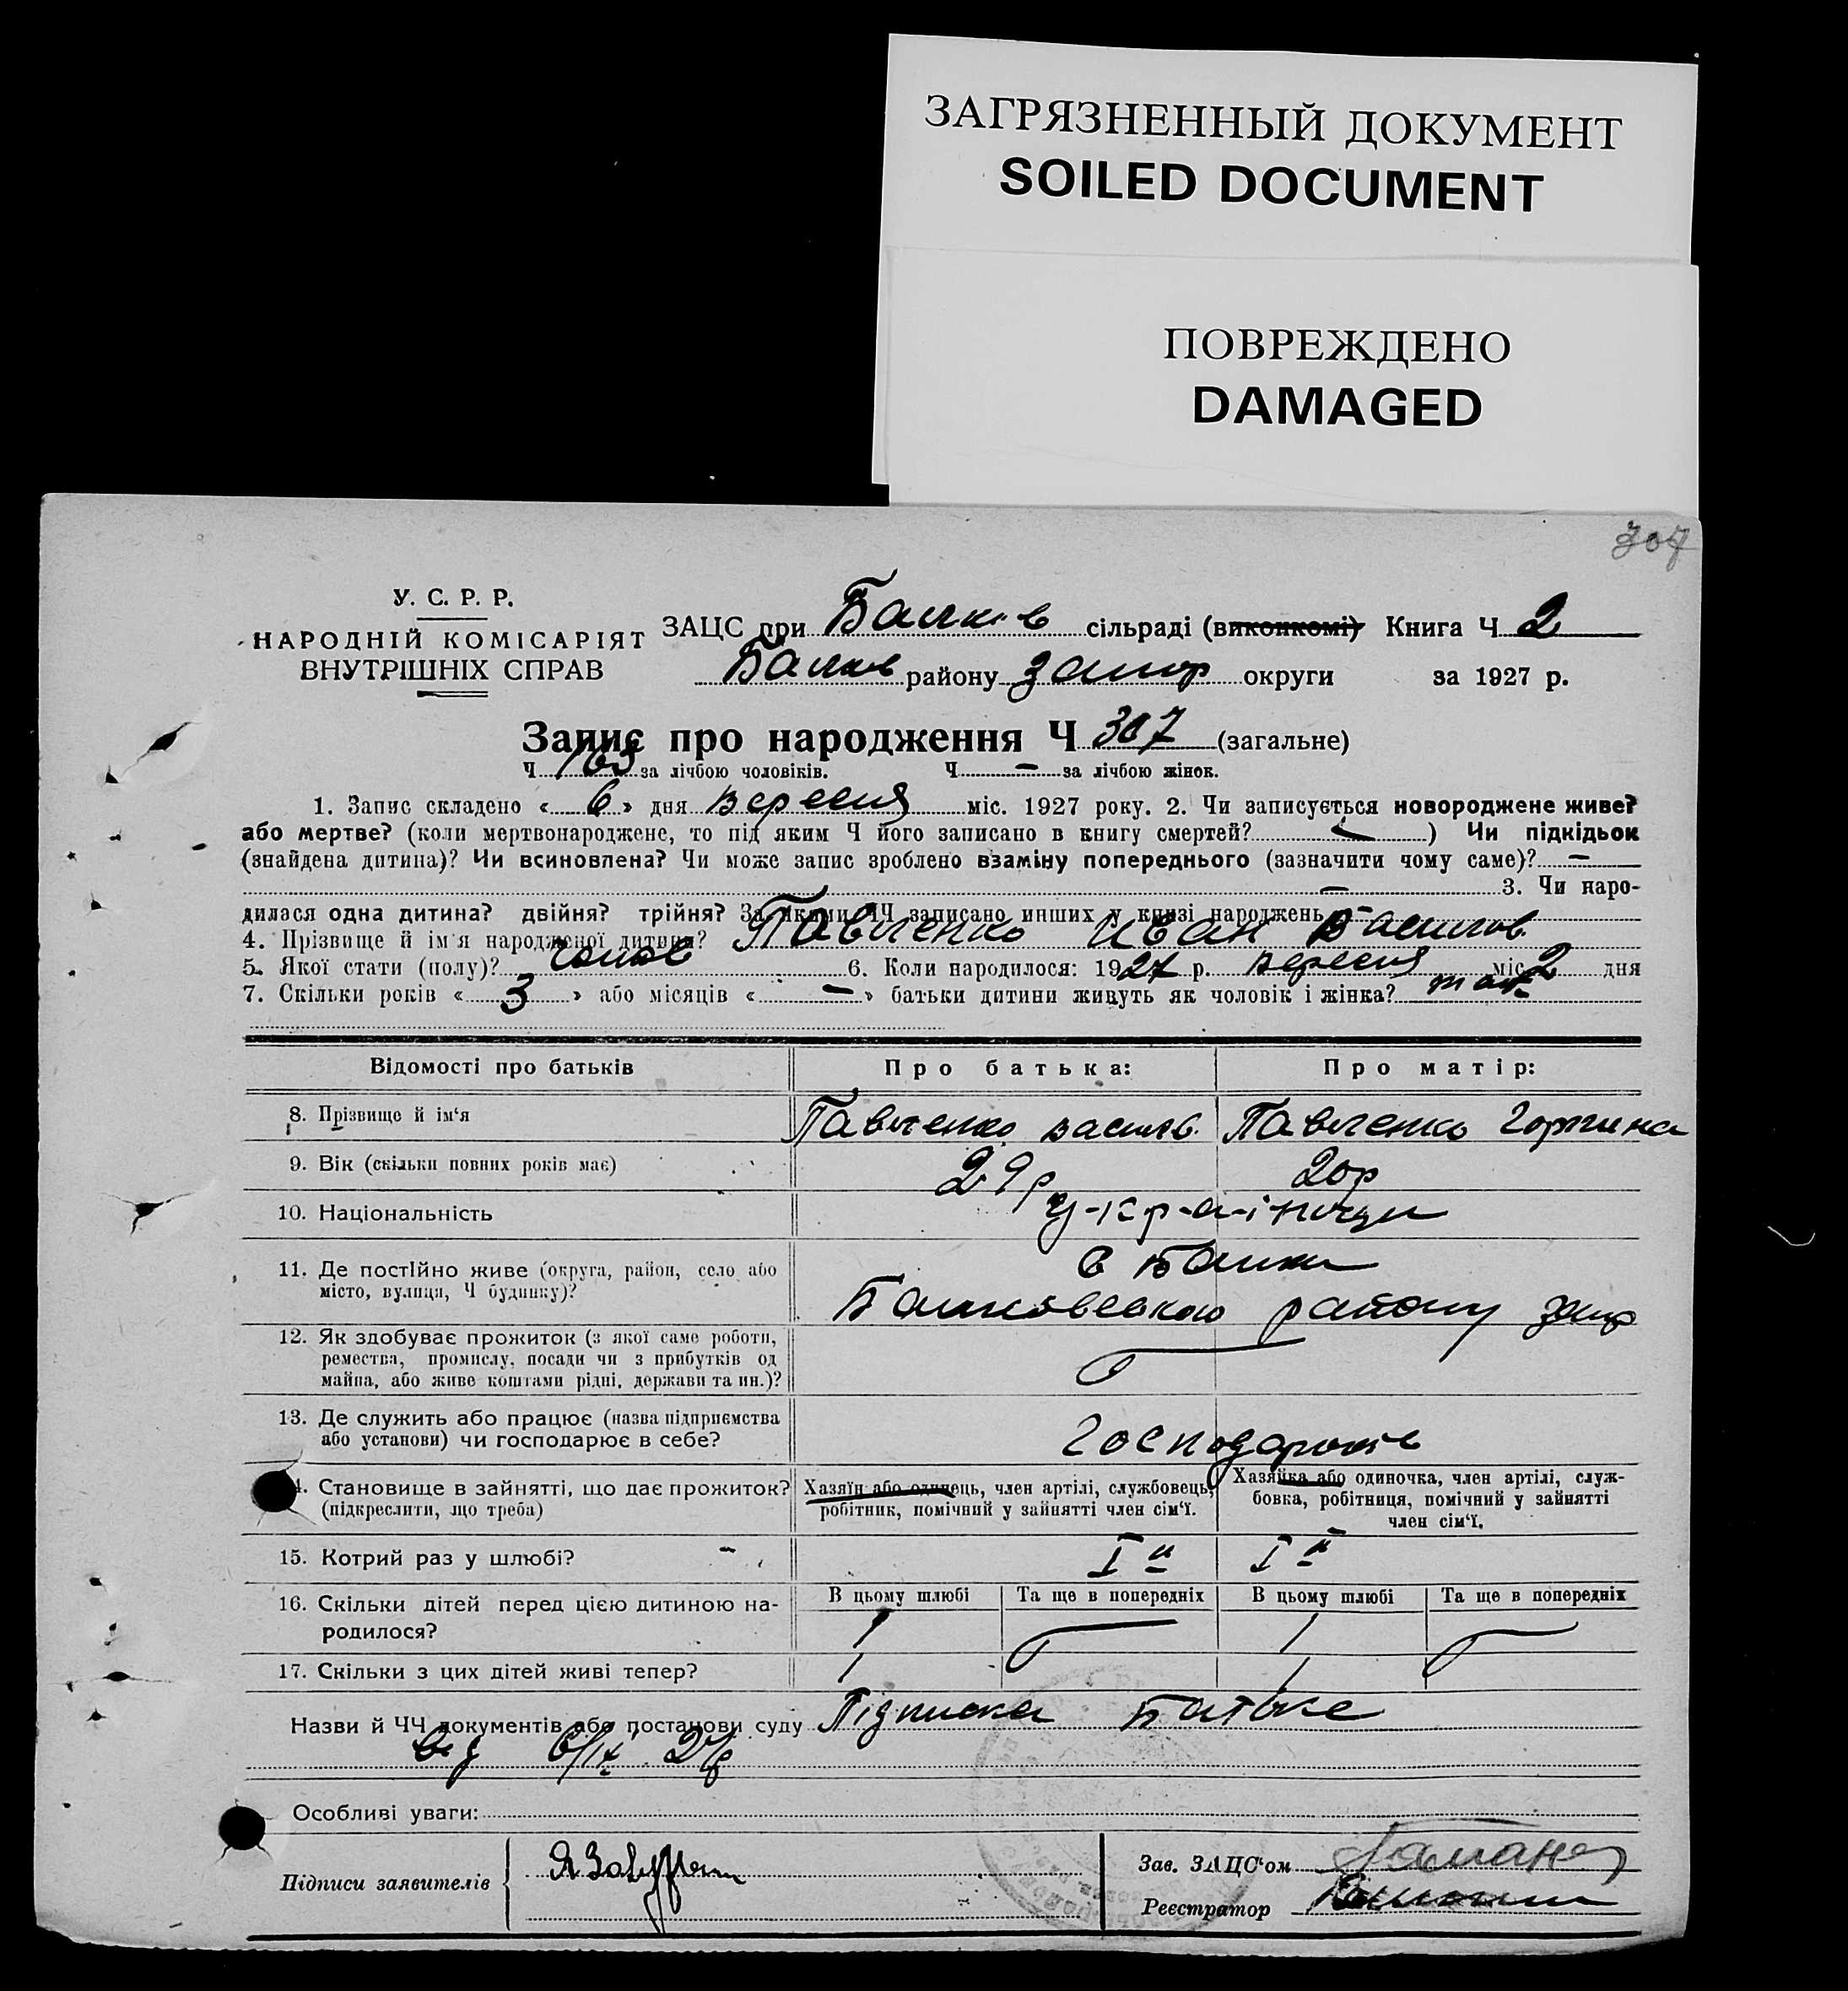 ЗАГРЯЗНЕННЫЙ ДОКУМЕНТ
SOILED DOCUMENT
ПОВРЕЖДЕНО
DAMAGED
307
У. С. Р. Р.
НАРОДНІЙ КОМІСАРІЯТ
ВНУТРІШНІХ СПРАВ
ЗАЦС при Балків сільраді (виконкомі) Книга Ч 2
Балків району Запор округи за 1927 р.
Запис про народження Ч 307 (загальне)
Ч 163 за лічбою чоловіків. Ч — за лічбою жінок.
1. Запис складено « 6 » дня вересня міс. 1927 року. 2. Чи записується новороджене живе?
або мертве? (коли мертвонароджене, то під яким Ч його записано в книгу смертей? ) Чи підкідьок
(знайдена дитина)? Чи всиновлена? Чи може запис зроблено взаміну попереднього (зазначити чому саме)? —
— 3. Чи наро-
дилася одна дитина? двійня? трійня? За якими ЧЧ записано инших у книзі народжень —
4. Прізвище й ім'я народженої дитини? Павленко Иван Васильов
5. Якої стати (полу)? чолов 6. Коли народилося: 1927 р. вересня міс 2 дня
7. Скільки років « 3 » або місяців « — » батьки дитини живуть як чоловік і жінка? так
Відомості про батьків Про батька: Про матір:
8. Прізвище й ім'я Павленко Василь Павленко Горпина
9. Вік (скільки повних років має) 29р 20р
10. Національність у-кр-а-інци
11. Де постІйно живе (округа, район, село або с Балки
місто, вулиця, Ч будинку)? Балковського району Запор
12. Як здобуває прожиток (з якої саме роботи,
ремества, промислу, посади чи з прибутків од
майна, або живе коштами рідні, держави та ин.)?
13. Де служить або працює (назва підприємства
або установи) чи господарює в себе?
4. Становище в зайнятті, що дає прожиток? Хазяїн або одинець, член артілі, службовець, Хазяйка або одиночка, член артілі, служ-
(підкреслити, що треба) робітник, помічний у зайнятті член сім'ї. бовка, робітниця, помічний у зайнятті
член сім'ї.
15. Котрий раз у шлюбі? I й I й
16. Скільки дітей перед цією дитиною на- В цьому шлюбі Та ще в попередніх В цьому шлюбі Та ще в попередніх
родилося? 1 1
17. Скільки з цих дітей живі тепер? 1 1
Назви й ЧЧ документів або постанови суду Підписка батька
від 6/IX 27р
Особливі уваги:
Підписи заявителів
Зав. ЗАЦС'ом
Реєстратор